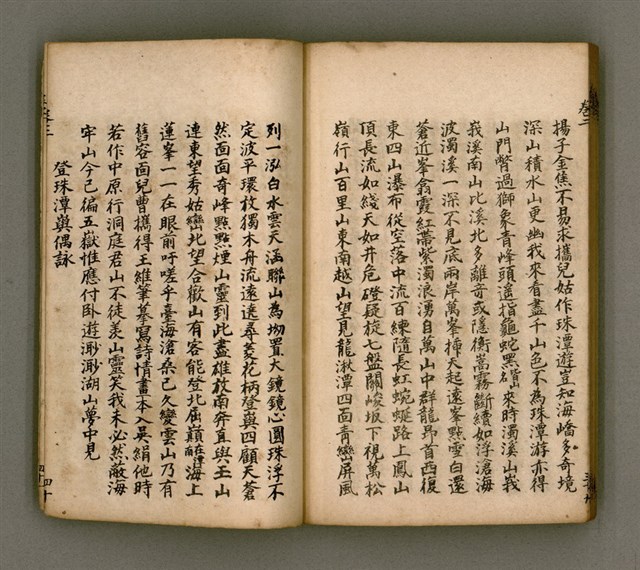 揚子金焦不易求攜兒姑作珠潭遊豈知海嶠多奇境
深山積水山更幽我來看盡千山色不為珠潭游亦得
山門瞥過獅象青峰頭遥指龜蛇黑礧來時濁溪山我
峩溪南山比溪北多離奇或隱衛嵩霧斷續如浮滄海
波濁溪一深不見底兩岸萬峯插天起遠峯點雪白還
蒼近峯翕霞紅帶紫濁浪湧自萬山中群龍昂首西復
東四山瀑布從空落中流百練隨長虹蜿蜒路上鳳山
頂長流如綫天如井危磴疑從七盤關峻坂下視萬松
嶺行山百里山東南越山望見龍湫潭四面青巒屏風
列一泓白水雲天涵聯山為拗置大鏡鏡心圓珠浮不
定波平環放獨木舟流遠遠尋菱花柄登與四顧天蒼
然面面奇峰點點煙山靈到此盡雄放南奔直與玉山
連東望秀姑巒北望合歡山有客能登北屈巔在潭南海上
蓮峯一一在眼前吁嗟乎臺海滄桑己久變雲山乃有
舊容面兒曹攜得王維筆摹寫詩情畫本入吳絹他時
若作中原行洞庭君山不徒羨山靈笑我未必然蔽海
牢山今已徧五嶽惟應付卧遊渺渺湖山夢中見
登珠潭與偶詠
卷三
四十